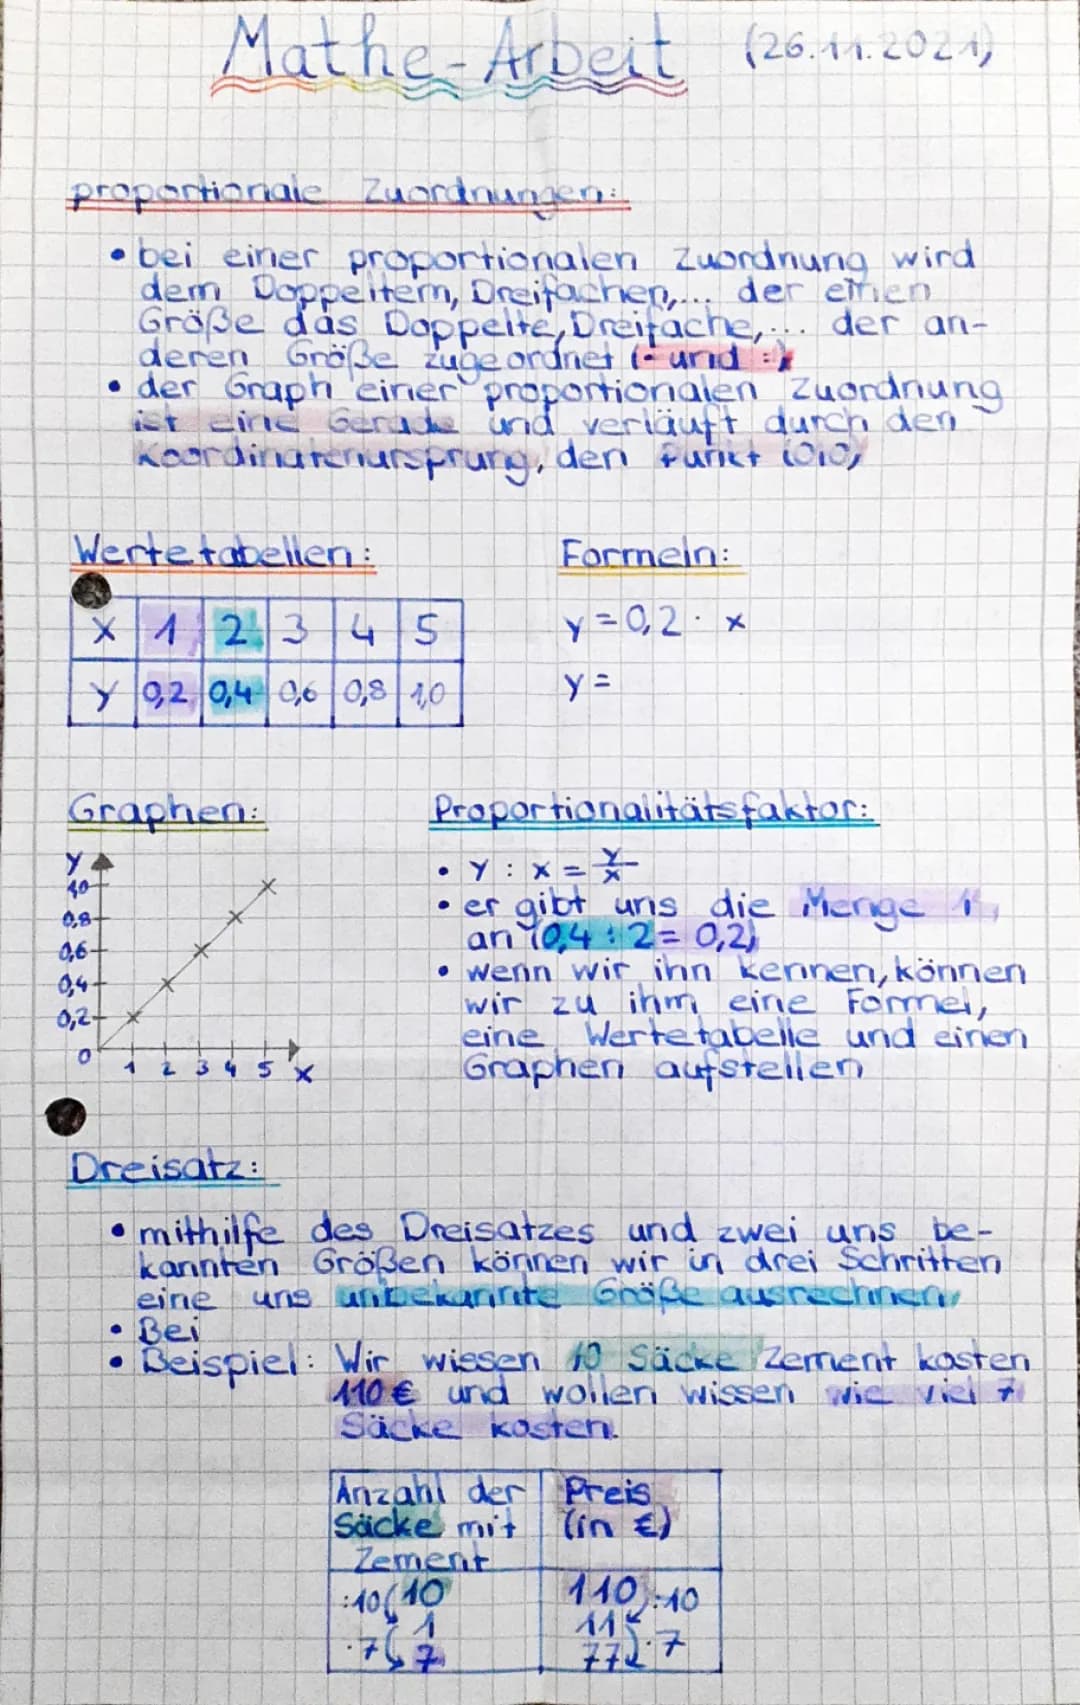 Mathe-Arbeit (26.11.2021)
proportionale Zuordnungen:
• bei einer proportionalen Zuordnung wird
dem Doppeltem, Dreifachen,... der einen
Größe das Doppelte, Dreifache,... der an-
deren Größe zugeordnet (· und :)
• der Graph einer proportionalen Zuordnung
ist eine Gerade und verläuft durch den
Koordinatenursprung, den Punkt (0|0)
Wertetabellen:
x 1 2 3 4 5
y 0,2 0,4 0,6 0,8 1,0
Formeln:
y = 0,2 · x
y =
Graphen:
y
1,0
0,8
0,6
0,4
0,2
0
1 2 3 4 5 x
Proportionalitätsfaktor:
• y : x = y/x
• er gibt uns die Menge 1
an (0,4 : 2 = 0,2)
• wenn wir ihn kennen, können
wir zu ihm eine Formel,
eine Wertetabelle und einen
Graphen aufstellen
Dreisatz:
• mithilfe des Dreisatzes und zwei uns be-
kannten Größen können wir in drei Schritten
eine uns unbekannte Größe ausrechnen
• Bei
• Beispiel: Wir wissen 10 Säcke Zement kosten
110 € und wollen wissen wie viel 7
Säcke kosten.
Anzahl der Preis
Säcke mit (in €)
Zement
:10 10 110 :10
1 11
·7 7 77 ·7